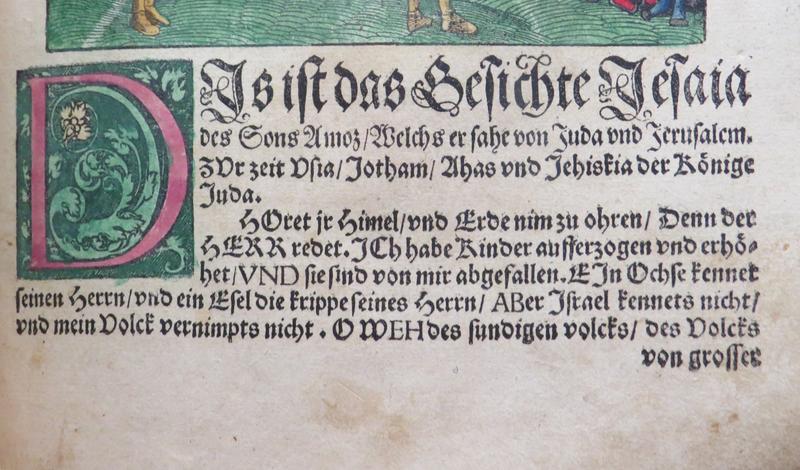 DIs ist das Gesichte Jesaia
des Sons Amoz/Welchs er sahe von Juda vnd Jerusalem.
ZVr zeit Vsia/ Jotham/ Ahas vnd Jehiskia der Könige
Juda.
HOret jr Himel/vnd Erde nim zu ohren/ Denn der
HERR redet. ICh habe Kinder aufferzogen vnd erhö-
het/VND sie sind von mir abgefallen. EIn Ochse kennet
seinen Herrn/vnd ein Esel die krippe seines Herrn/ ABer Israel kennets nicht/
vnd mein Volck vernimpts nicht. O WEH des sundigen volcks/ des Volcks
von grosser